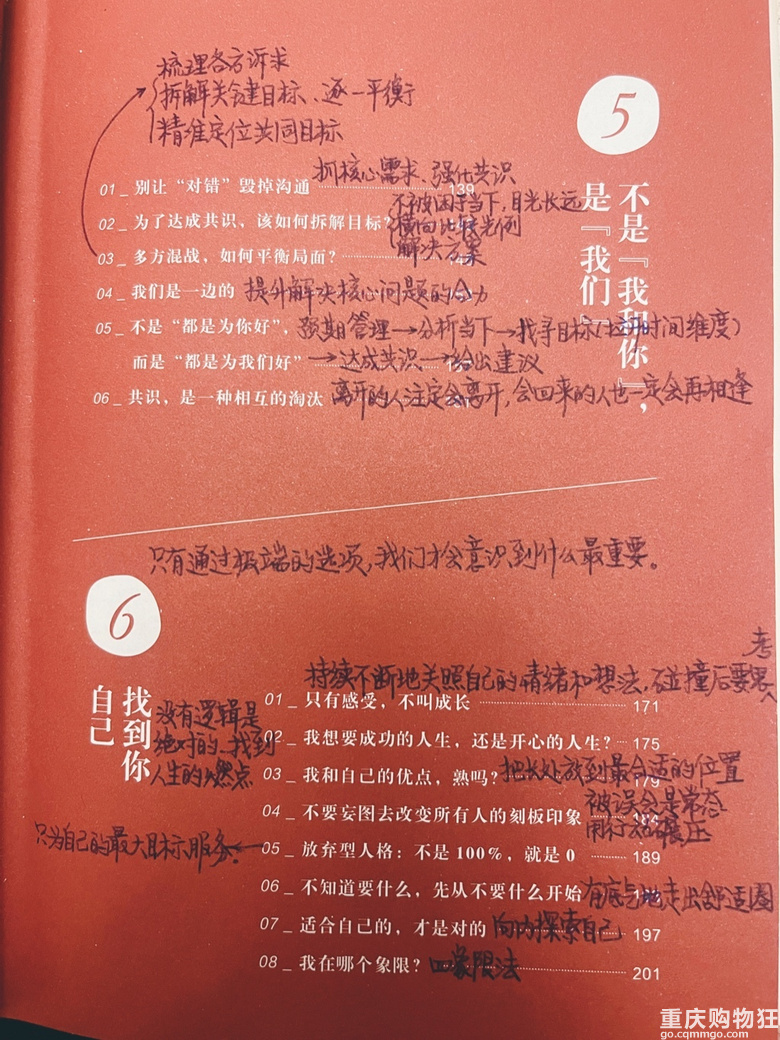 梳理各方诉求
拆解关键目标、逐一平衡
精准定位共同目标
5
不是『我和你』，
是『我们』
抓核心需求、强化共识
01_ 别让“对错”毁掉沟通 139
不被困于当下，目光长远
02_ 为了达成共识，该如何拆解目标？
横向比较先例
03_ 多方混战，如何平衡局面？
解决方案
04_ 我们是一边的 提升解决核心问题的合力
05_ 不是“都是为你好”， 预期管理→分析当下→找寻目标(拉开时间维度)
而是“都是为我们好” →达成共识→给出建议
06_ 共识，是一种相互的淘汰 离开的人注定会离开，会回来的人也一定会再相逢
只有通过极端的选项，我们才会意识到什么最重要。
6
找到你
自己
没有逻辑是
绝对的，找到
人生的燃点
持续不断地关照自己的情绪和想法，碰撞后要思考
01_ 只有感受，不叫成长 171
02_ 我想要成功的人生，还是开心的人生？ 175
03_ 我和自己的优点，熟吗？ 把长处放到最合适的位置 179
被误会是常态
04_ 不要妄图去改变所有人的刻板印象 184
用行动碾压
只为自己的最大目标服务
05_ 放弃型人格：不是 100%，就是 0 189
06_ 不知道要什么，先从不要什么开始 有底气地走出舒适圈
07_ 适合自己的，才是对的 向内探索自己 197
08_ 我在哪个象限？ 四象限法 201
重庆购物狂
go.cqmmgo.com